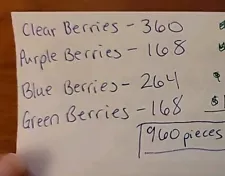 Clear Berries - 360
Purple Berries - 168
Blue Berries - 264
Green Berries - 168
960 pieces